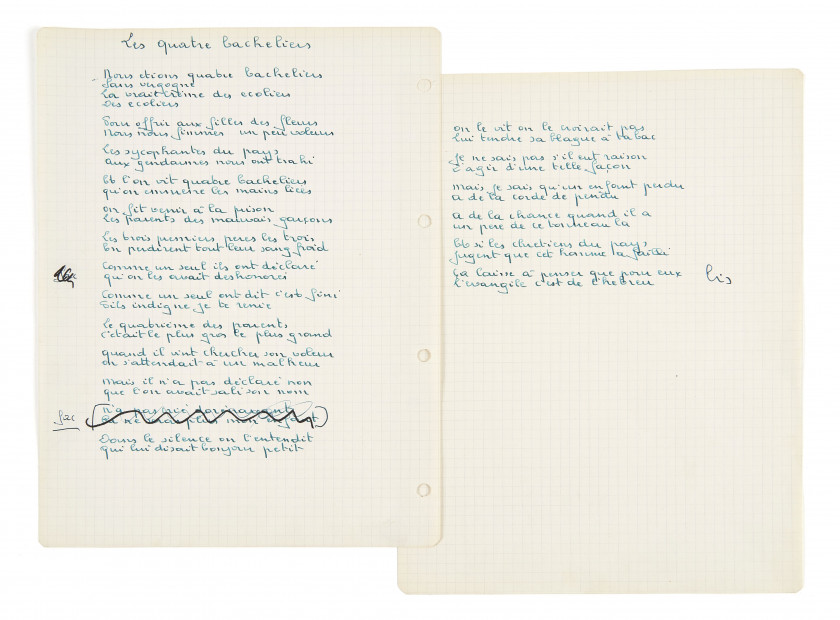 Les quatre bacheliers
Nous etions quatre bacheliers
Sans vergogne
La vraie crème des ecoliers
Des ecoliers
Pour offrir aux filles des fleurs
Nous nous fimmes un peu voleurs
Les sycophantes du pays
aux gendarmes nous ont trahi
Et l'on vit quatre bacheliers
qu'on emmene les mains liées
on fit venir à la prison
Les Parents des mauvais garçons
Les trois premiers peres les trois
En perdirent tout leur sang froid
Comme un seul ils ont déclaré
qu'on les avait deshonorés
Comme un seul ont dit c'est fini
Fils indigne je te renie
Le quatrième des parents
c'était le plus gros le plus grand
quand il vint chercher son voleur
on s'attendait à un malheur
Mais il n'a pas déclaré non
que l'on avait sali son nom
n'a pas crié dorénavant
tu n'es plus mon enfant
Dans le silence on l'entendit
qui lui disait bonjour petit
on le vit on le croirait pas
Lui tendre sa blague à tabac
Je ne sais pas s'il eut raison
d'agir d'une telle façon
Mais je sais qu'un enfant perdu
a de la corde de pendu
A de la chance quand il a
un pere de ce tonneau là
Et si les chretiens du pays
jugent que cet homme a failli
Ça laisse à penser que pour eux
L'évangile c'est de l'hebreu
bis